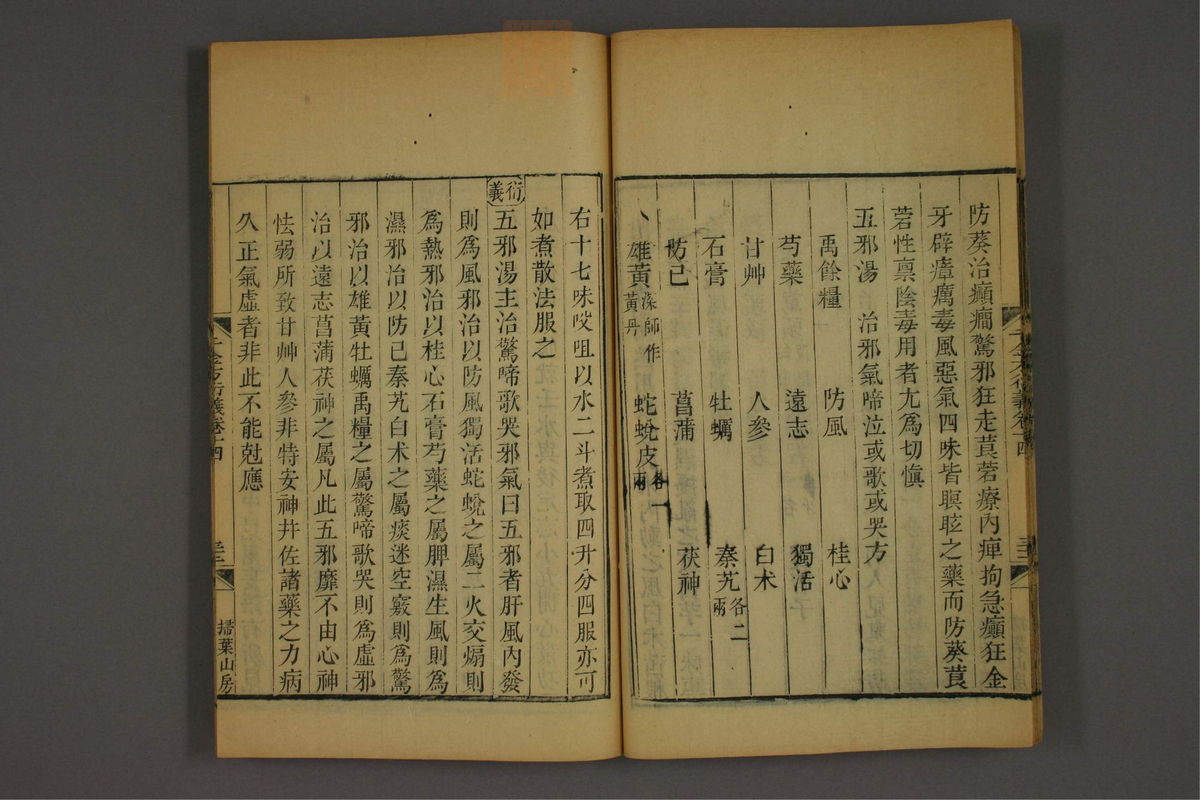 防葵治癲癎驚邪狂走莨菪療內痺拘急癲狂金
牙辟瘴癘毒風惡氣四味皆瞑眩之藥而防葵莨
菪性禀陰毒用者尤爲切愼
五邪湯 治邪氣啼泣或歌或哭方
禹餘糧 防風 桂心
芍藥 遠志 獨活
甘艸 人參 白术
石膏 牡蠣 秦艽各二兩
防己 菖蒲 茯神
雄黃深師作黃丹 蛇蛻皮各一兩
右十七味㕮咀以水二斗煮取四升分四服亦可
如煮散法服之
衍義
五邪湯主治驚啼歌哭邪氣曰五邪者肝風內發
則爲風邪治以防風獨活蛇蛻之屬二火交煽則
爲熱邪治以桂心石膏芍藥之屬脾濕生風則爲
濕邪治以防己秦艽白术之屬痰迷空竅則爲驚
邪治以雄黃牡蠣禹糧之屬驚啼歌哭則爲虛邪
治以遠志菖蒲茯神之屬凡此五邪靡不由心神
怯弱所致甘艸人參非特安神幷佐諸藥之力病
久正氣虛者非此不能尅應
千金方衍義卷十四
掃葉山房